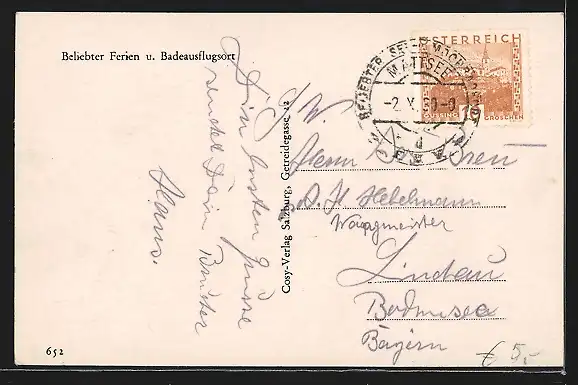 Beliebter Ferien u. Badeausflugsort
Die besten Grüsse
sendet Dein Bruder
Hans.
Cosy-Verlag Salzburg, Getreidegasse 22
652
ÖSTERREICH
GÜSSING
GROSCHEN
BELIEBTER
MATTSEE
-2.X.30-9
Herrn
Hebelmann
Waagmeister
Lindau
Bodensee
Bayern
€ 5,-